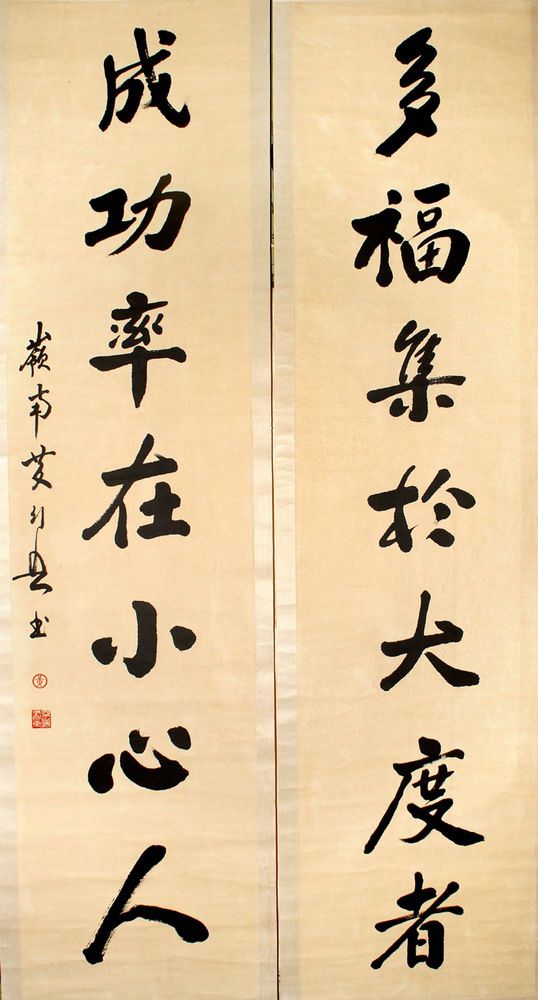 多福集於大度者
成功率在小心人
嶺南黄
書